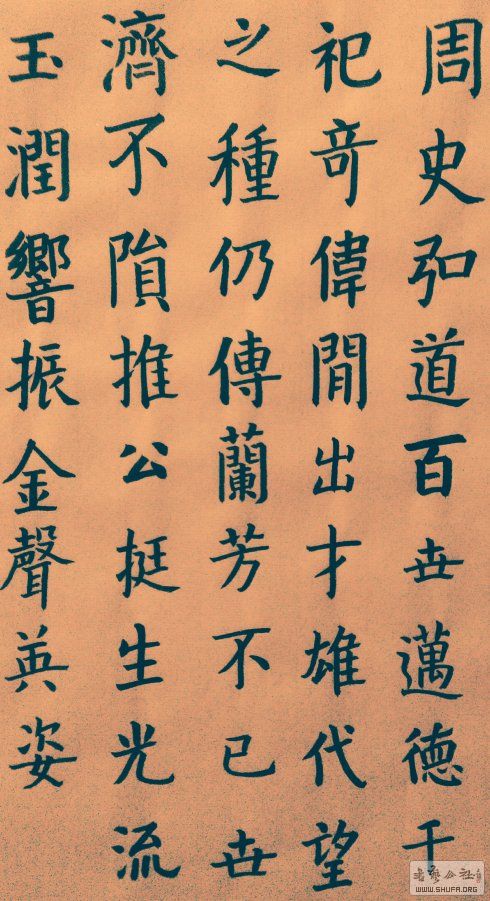 周史弘道百世邁德千
祀奇偉間出才雄代望
之種仍傳蘭芳不已世
濟不隕推公挺生光流
玉潤響振金聲英姿
書藝公社
WWW.SHUFA.ORG